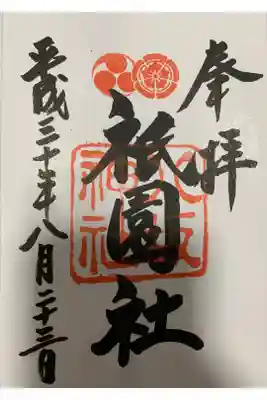 奉拝
祇園社
八坂神社
平成三十年八月二十三日